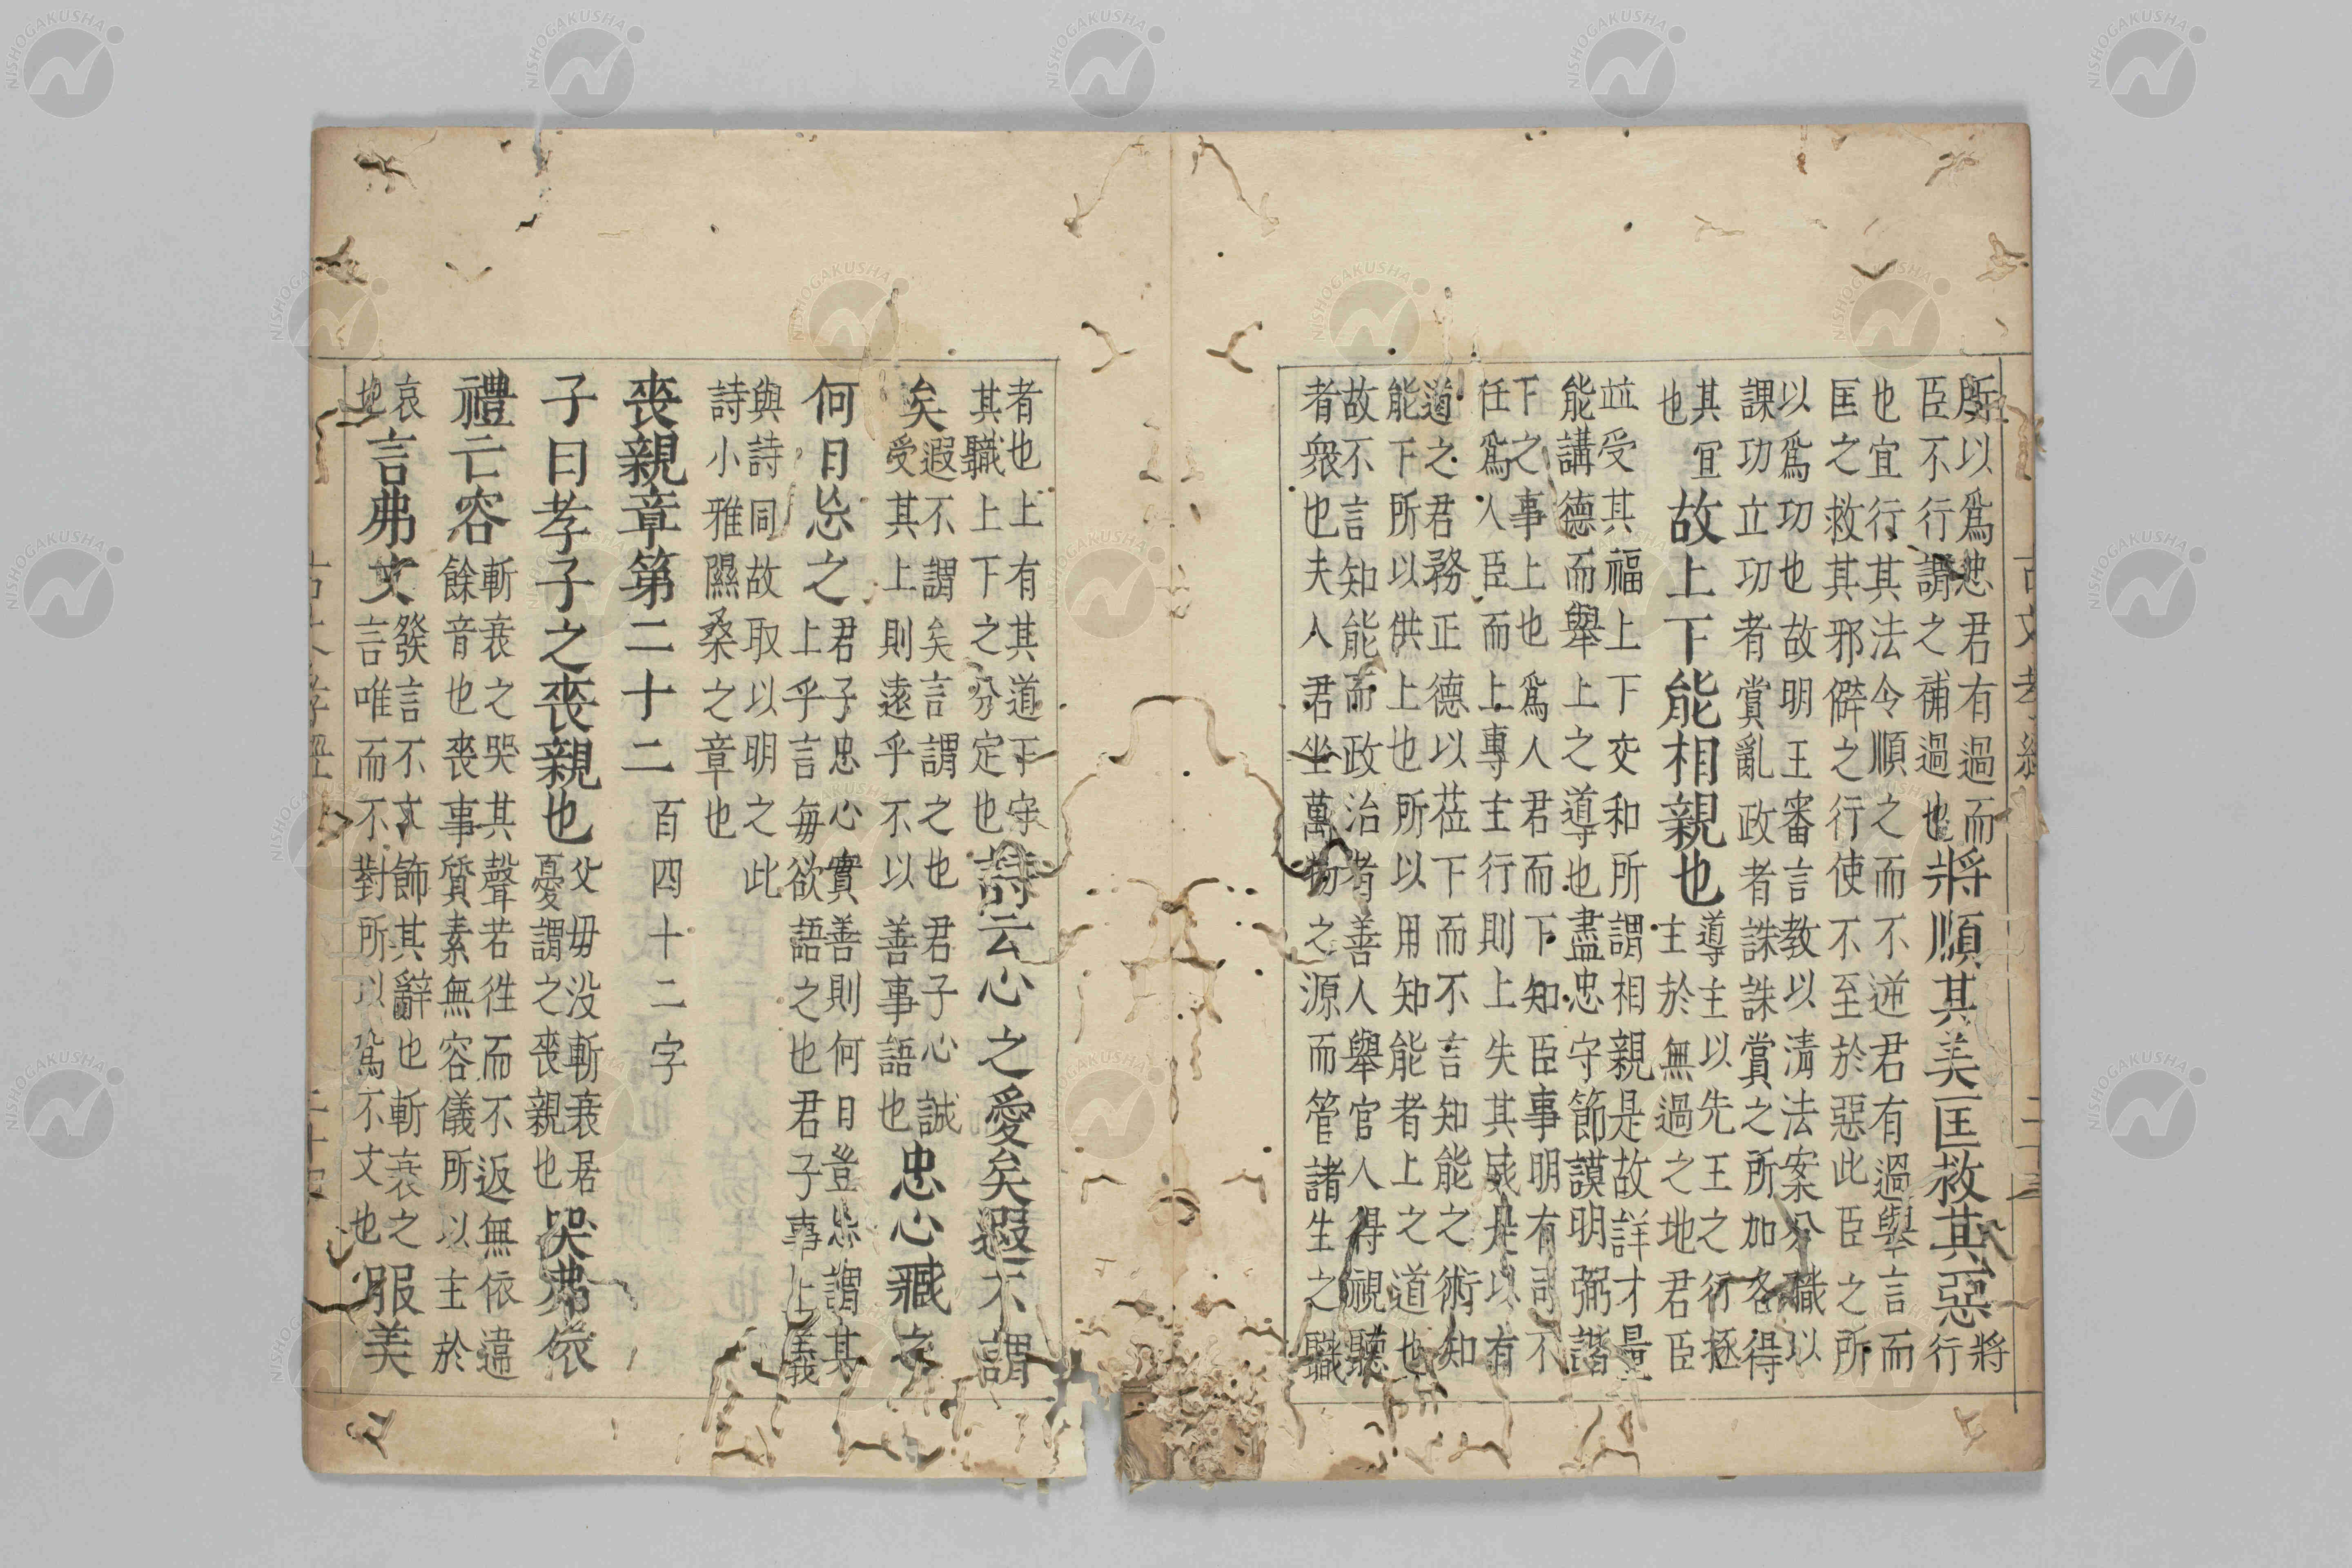 古文孝經
二十三
所以爲忠君有過而
臣不行謂之補過也
將順其美匡救其惡
將
行
也宜行其法令順之而不逆君有過舉言而
匡之救其邪僻之行使不至於惡此臣之所
以爲功也故明王審言教以淸法案分職以
課功立功者賞亂政者誅誅賞之所加各得
其宜
也
故上下能相親也
導主以先王之行拯
主於無過之地君臣
竝受其福上下交和所謂相親是故詳才量
能講德而舉上之導也盡忠守節謨明弼諧
下之事上也爲人君而下知臣事明有司不
任爲人臣而上專主行則上失其威是以有
道之君務正德以莅下而不言知能之術知
能下所以供上也所以用知能者上之道也
故不言知能而政治者善人舉官人得視聽
者衆也夫人君坐萬物之源而管諸生之職
者也上有其道下守
其職上下之分定也
詩云心之愛矣遐不謂
矣
遐不謂矣言謂之也君子心誠
受其上則遠乎不以善事語也
忠心臧之
何日忘之
君子忠心實善則何日豈忘謂其
上乎言每欲語之也君子事上義
與詩同故取以明之此
詩小雅隰桑之章也
喪親章第二十二
百四十二字
子曰孝子之喪親也
父母没斬衰居
憂謂之喪親也
哭弗依
禮亡容
斬衰之哭其聲若徃而不返無依違
餘音也喪事質素無容儀所以主於
哀
地
言弗文
發言不文飾其辭也斬衰之
言唯而不對所以爲不文也
服美